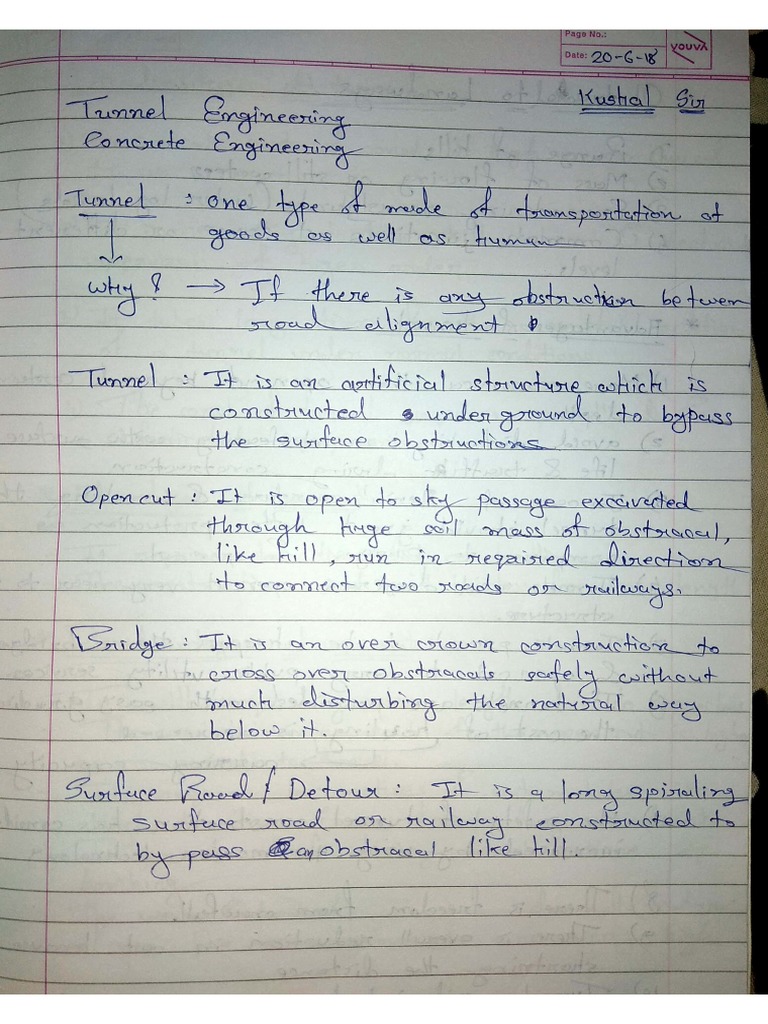 Page No.:
Date: 20-6-18
YOUVA
Kushal Sir
Tunnel Engineering
Concrete Engineering
Tunnel : one type of mode of transportation of
goods as well as human
Why ? → If there is any obstruction between
road alignment
Tunnel : It is an artificial structure which is
constructed underground to bypass
the surface obstructions
Open cut : It is open to sky passage excavected
through huge soil mass of obstracal,
like hill, run in reqaired direction
to connect two roads or railways.
Bridge : It is an over crown construction to
cross over obstracals safely without
much disturbing the natural way
below it.
Surface Road / Detour : It is a long spiraling
surface road or railway constructed to
by pass an obstracal like hill.